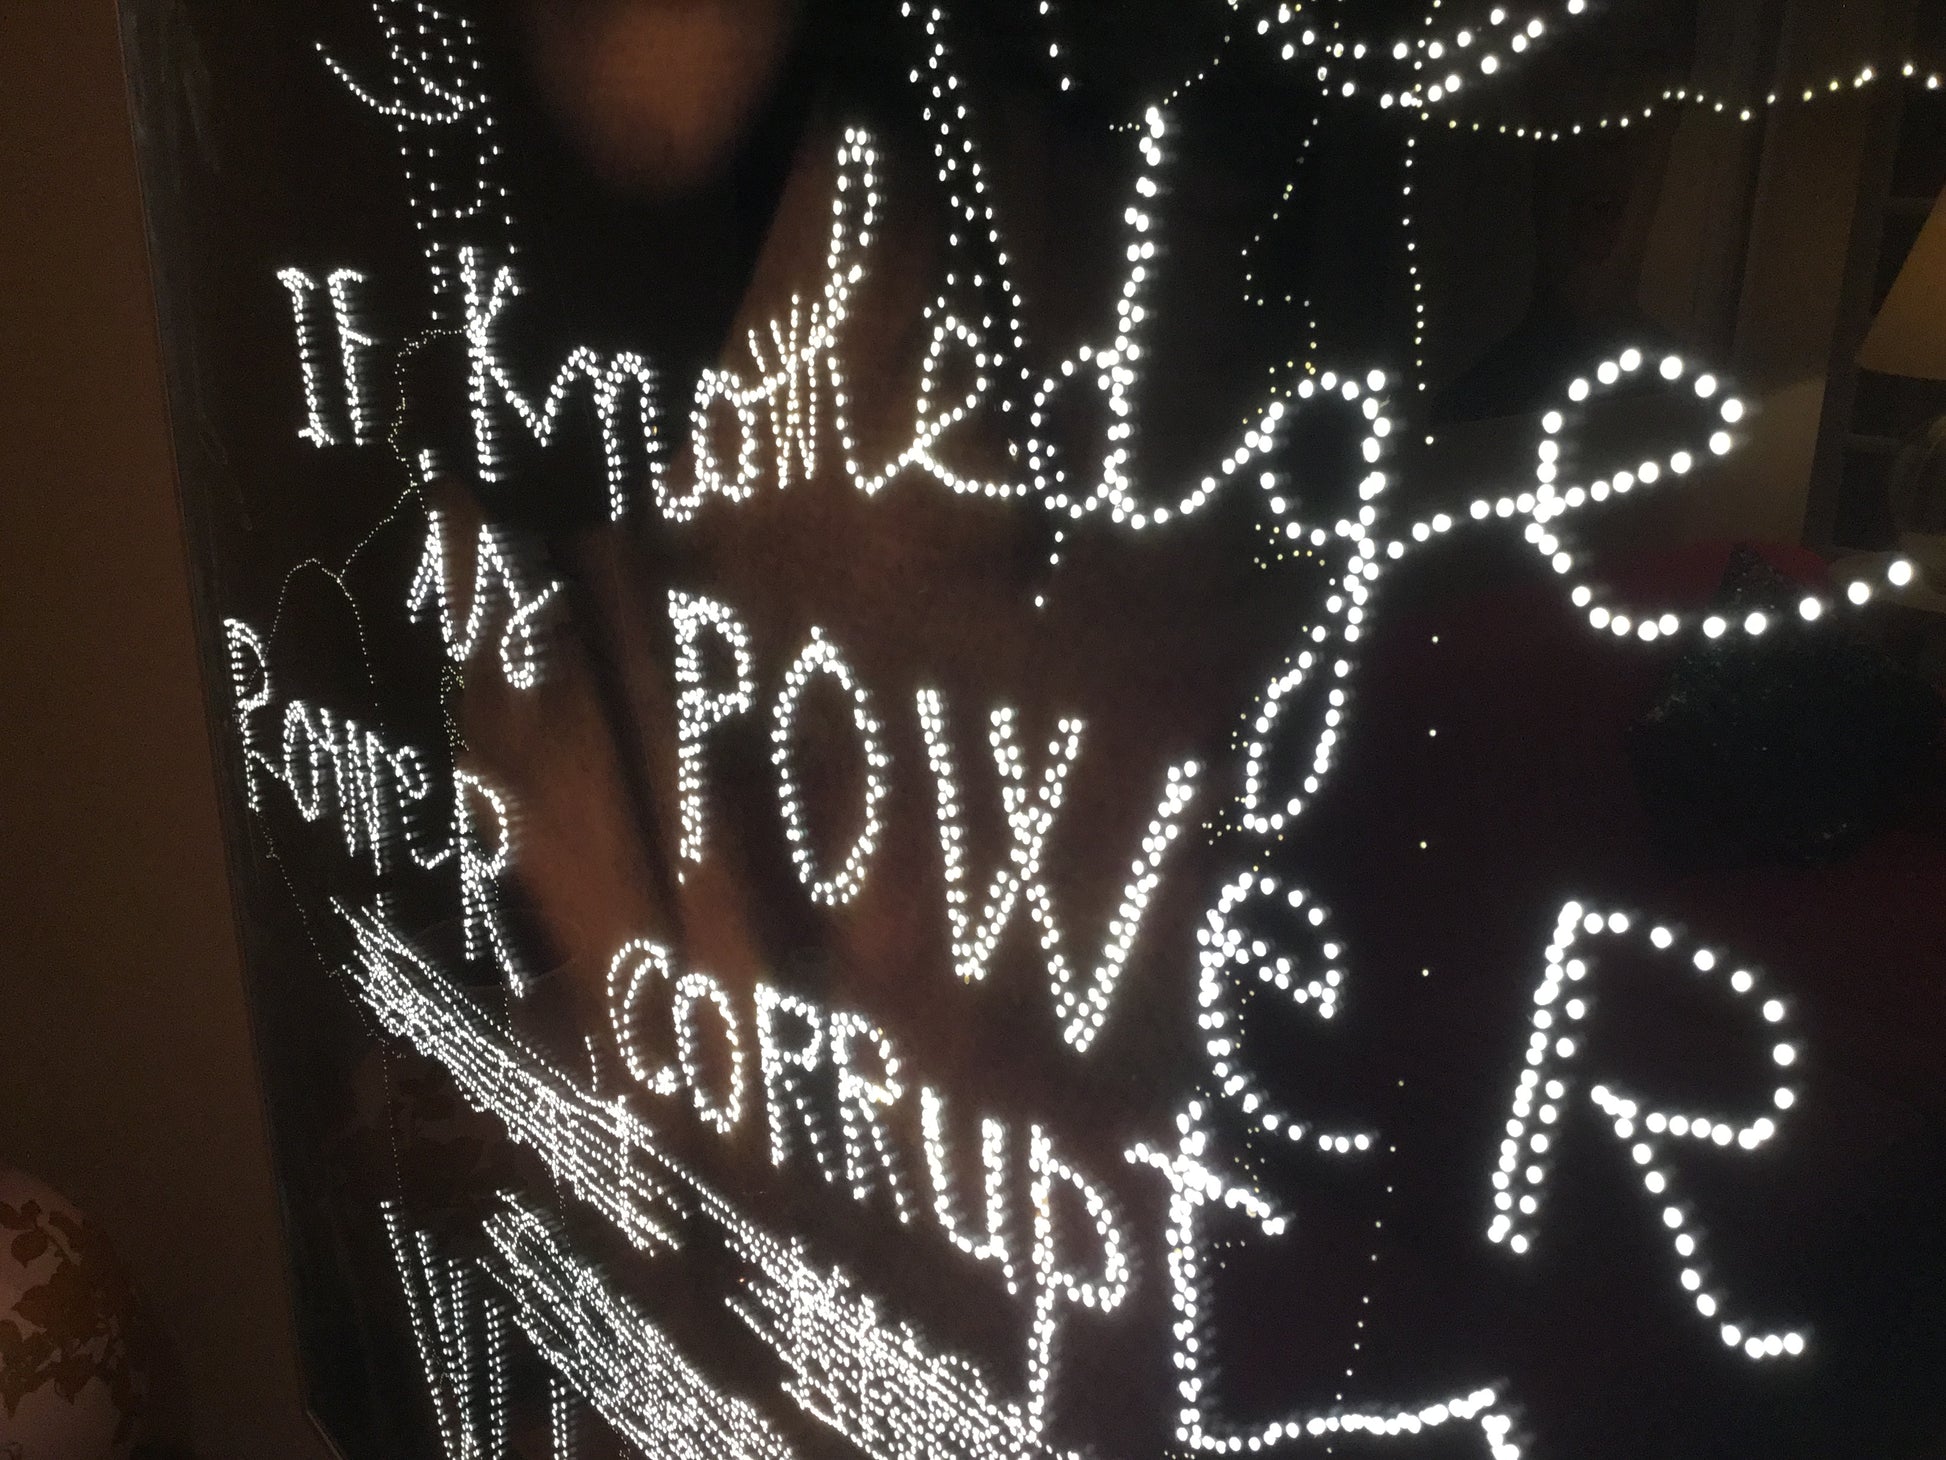 IF Knowledge
is POWER
POWER CORRUPT